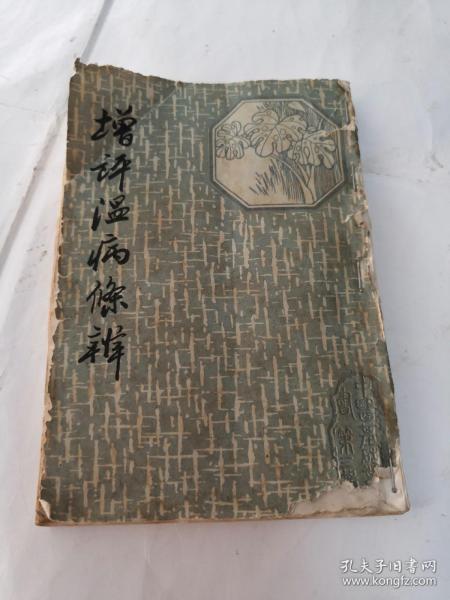 增評温病條辨
孔夫子旧书网
www.kongfz.com